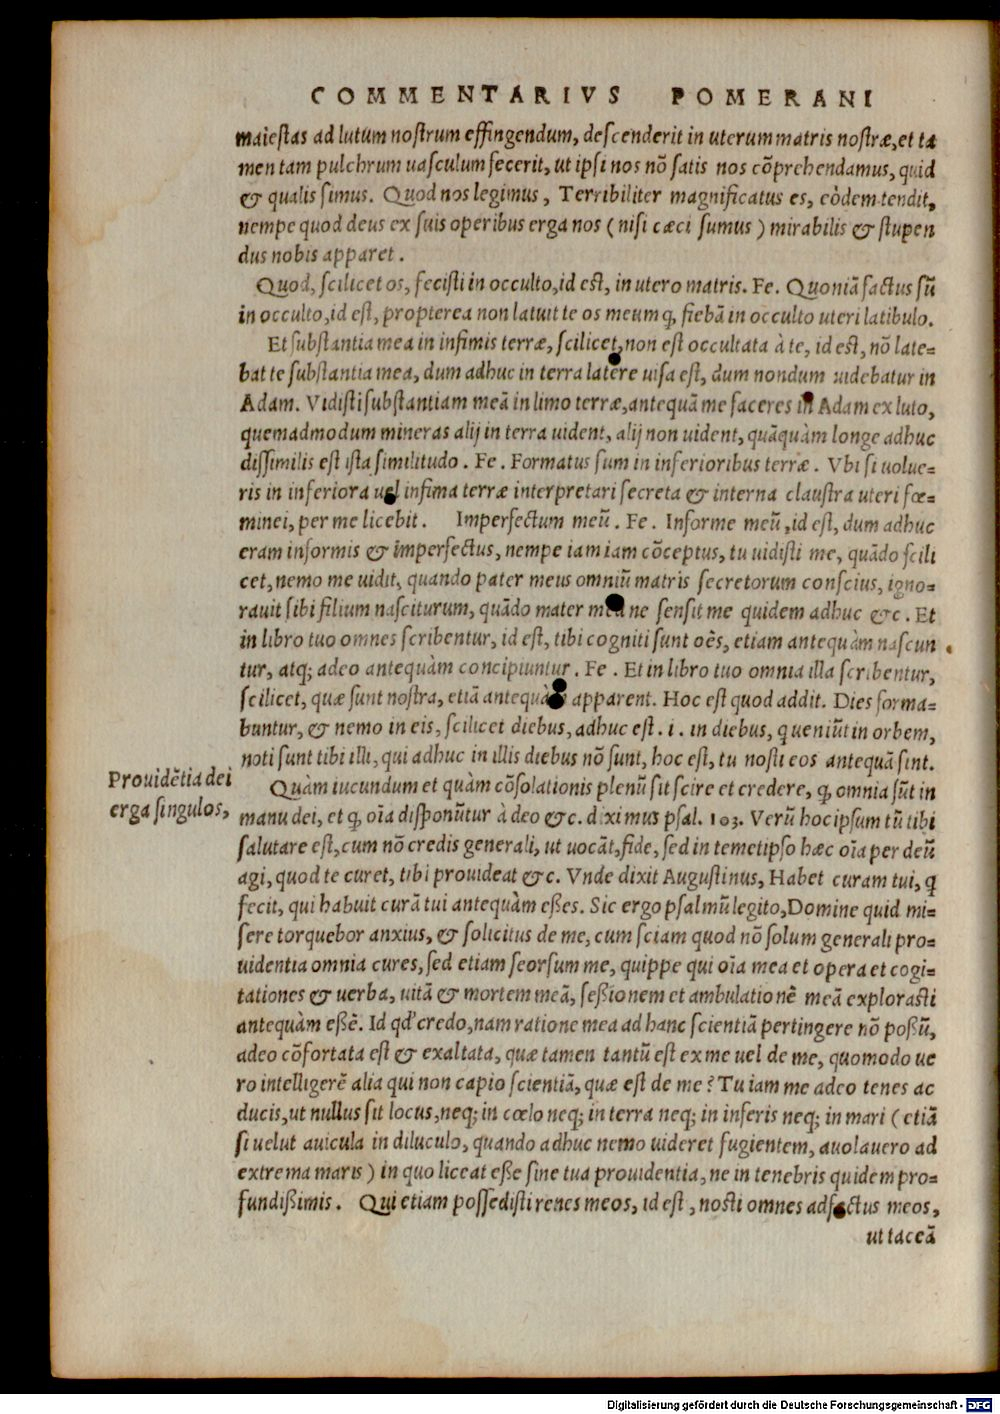 COMMENTARIVS POMERANI
maiestas ad lutum nostrum effingendum, descenderit in uterum matris nostræ, et ta
men tam pulchrum uasculum fecerit, ut ipsi nos nō satis nos cōprehendamus, quid
& qualis simus. Quod nos legimus, Terribiliter magnificatus es, eòdem tendit,
nempe quod deus ex suis operibus erga nos ( nisi cæci sumus ) mirabilis & stupen
dus nobis apparet.
Quod, scilicet os, fecisti in occulto, id est, in utero matris. Fe. Quoniā factus sū
in occulto, id est, propterea non latuit te os meum q, fiebā in occulto uteri latibulo.
Et substantia mea in infimis terræ, scilicet, non est occultata à te, id est, nō late=
bat te substantia mea, dum adhuc in terra latere uisa est, dum nondum uidebatur in
Adam. Vidisti substantiam meā in limo terræ, antequā me faceres in Adam ex luto,
quemadmodum mineras alij in terra uident, alij non uident, quāquàm longe adhuc
dissimilis est ista similitudo. Fe. Formatus sum in inferioribus terræ. Vbi si uolue=
ris in inferiora uel infima terræ interpretari secreta & interna claustra uteri fœ=
minei, per me licebit. Imperfectum meū. Fe. Informe meū, id est, dum adhuc
eram informis & imperfectus, nempe iam iam cōceptus, tu uidisti me, quādo scili
cet, nemo me uidit, quando pater meus omniū matris secretorum conscius, igno=
rauit sibi filium nasciturum, quādo mater mea ne sensit me quidem adhuc &c. Et
in libro tuo omnes scribentur, id est, tibi cogniti sunt oēs, etiam antequàm nascun
tur, atq; adeo antequàm concipiuntur. Fe. Et in libro tuo omnia illa scribentur,
scilicet, quæ sunt nostra, etiā antequàm apparent. Hoc est quod addit. Dies forma=
buntur, & nemo in eis, scilicet diebus, adhuc est. i. in diebus, q ueniūt in orbem,
noti sunt tibi illi, qui adhuc in illis diebus nō sunt, hoc est, tu nosti eos antequā sint.
Prouidētia dei
erga singulos,
Quàm iucundum et quàm cōsolationis plenū sit scire et credere, q, omnia sūt in
manu dei, et q, oīa disponūtur à deo &c. diximus psal. 103. Verū hoc ipsum tū tibi
salutare est, cum nō credis generali, ut uocāt, fide, sed in temetipso hæc oīa per deū
agi, quod te curet, tibi prouideat &c. Vnde dixit Augustinus, Habet curam tui, q
fecit, qui habuit curā tui antequàm esses. Sic ergo psalmū legito, Domine quid mi=
sere torquebor anxius, & solicitus de me, cum sciam quod nō solum generali pro=
uidentia omnia cures, sed etiam seorsum me, quippe qui oīa mea et opera et cogi=
tationes & uerba, uitā & mortem meā, sessionem et ambulationē meā explorasti
antequàm essē. Id qd' credo, nam ratione mea ad hanc scientiā pertingere nō possū,
adeo cōfortata est & exaltata, quæ tamen tantū est ex me uel de me, quomodo ue
ro intelligerē alia qui non capio scientiā, quæ est de me? Tu iam me adeo tenes ac
ducis, ut nullus sit locus, neq; in cœlo neq; in terra neq; in inferis neq; in mari ( etiā
si uelut auicula in diluculo, quando adhuc nemo uideret fugientem, auolauero ad
extrema maris ) in quo liceat esse sine tua prouidentia, ne in tenebris quidem pro=
fundissimis. Qui etiam possedisti renes meos, id est, nosti omnes adfectus meos,
ut taceā
Digitalisierung gefördert durch die Deutsche Forschungsgemeinschaft - DFG